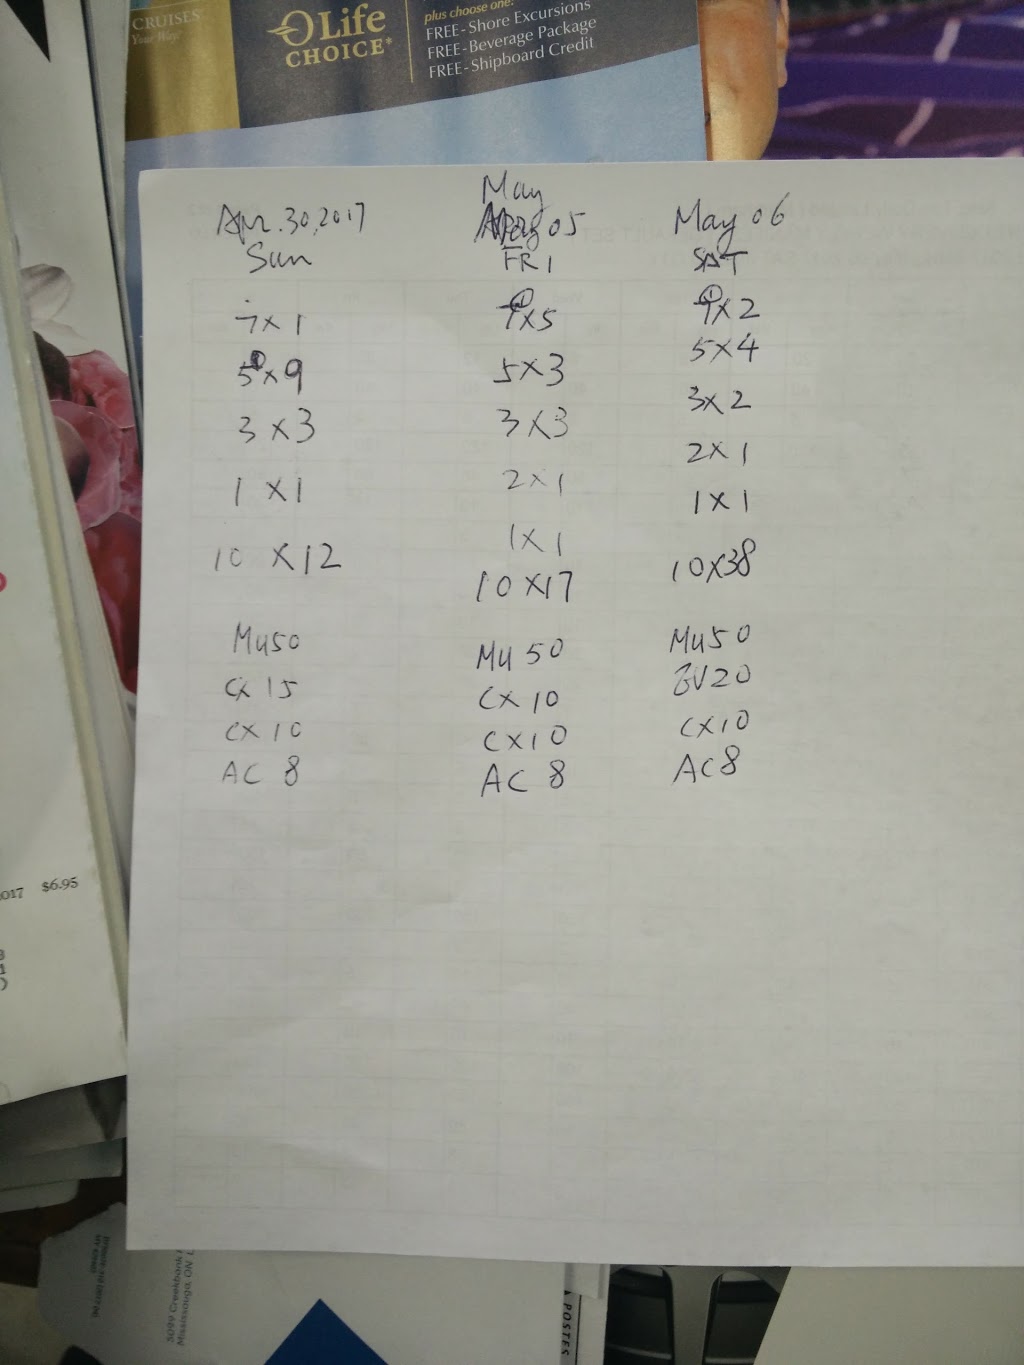 CRUISES
Your Way!
OLife
CHOICE
plus choose one:
FREE-Shore Excursions
FREE-Beverage Package
FREE-Shipboard Credit
Apr. 30, 2017
Sun
7 x 1
5 x 9
3 x 3
1 x 1
10 x 12
Mu50
CX 15
CX 10
AC 8
May
05
FRI
7x5
5x3
3x3
2x1
1x1
10x17
Mu 50
CX 10
CX10
AC 8
May 06
SAT
x2
5x4
3x2
2x1
1x1
10x38
Mu50
20
CX10
AC8
2017 $6.95
5099 Creekbank
Mississauga, ON
POSTES